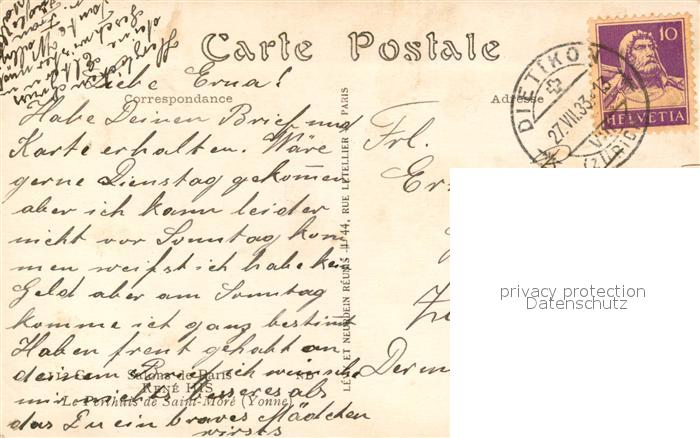 Carte Postale
Correspondance
Adresse
10
HELVETIA
DIETIKON
27.VII.33
(ZÜRICH)
Liebe Erna!
Habe Deinen Brief und
Karte erhalten. Wäre
gerne Dienstag gekommen
aber ich kann leider
nicht vor Sonntag kom
men weisst ich habe kein
Geld aber am Sonntag
komme ich ganz bestimmt
Haben freut gehabt an
deinem Brief ich wünsche
mir nichts besseres als
das Du ein braves Mädchen
wirst
Frl.
Er
Salon de Paris
RENÉ HIS
Le Perthuis de Saint-Moré (Yonne)
LÉVY ET NEURDEIN RÉUNIS - 44, RUE LETELLIER - PARIS
privacy protection
Datenschutz